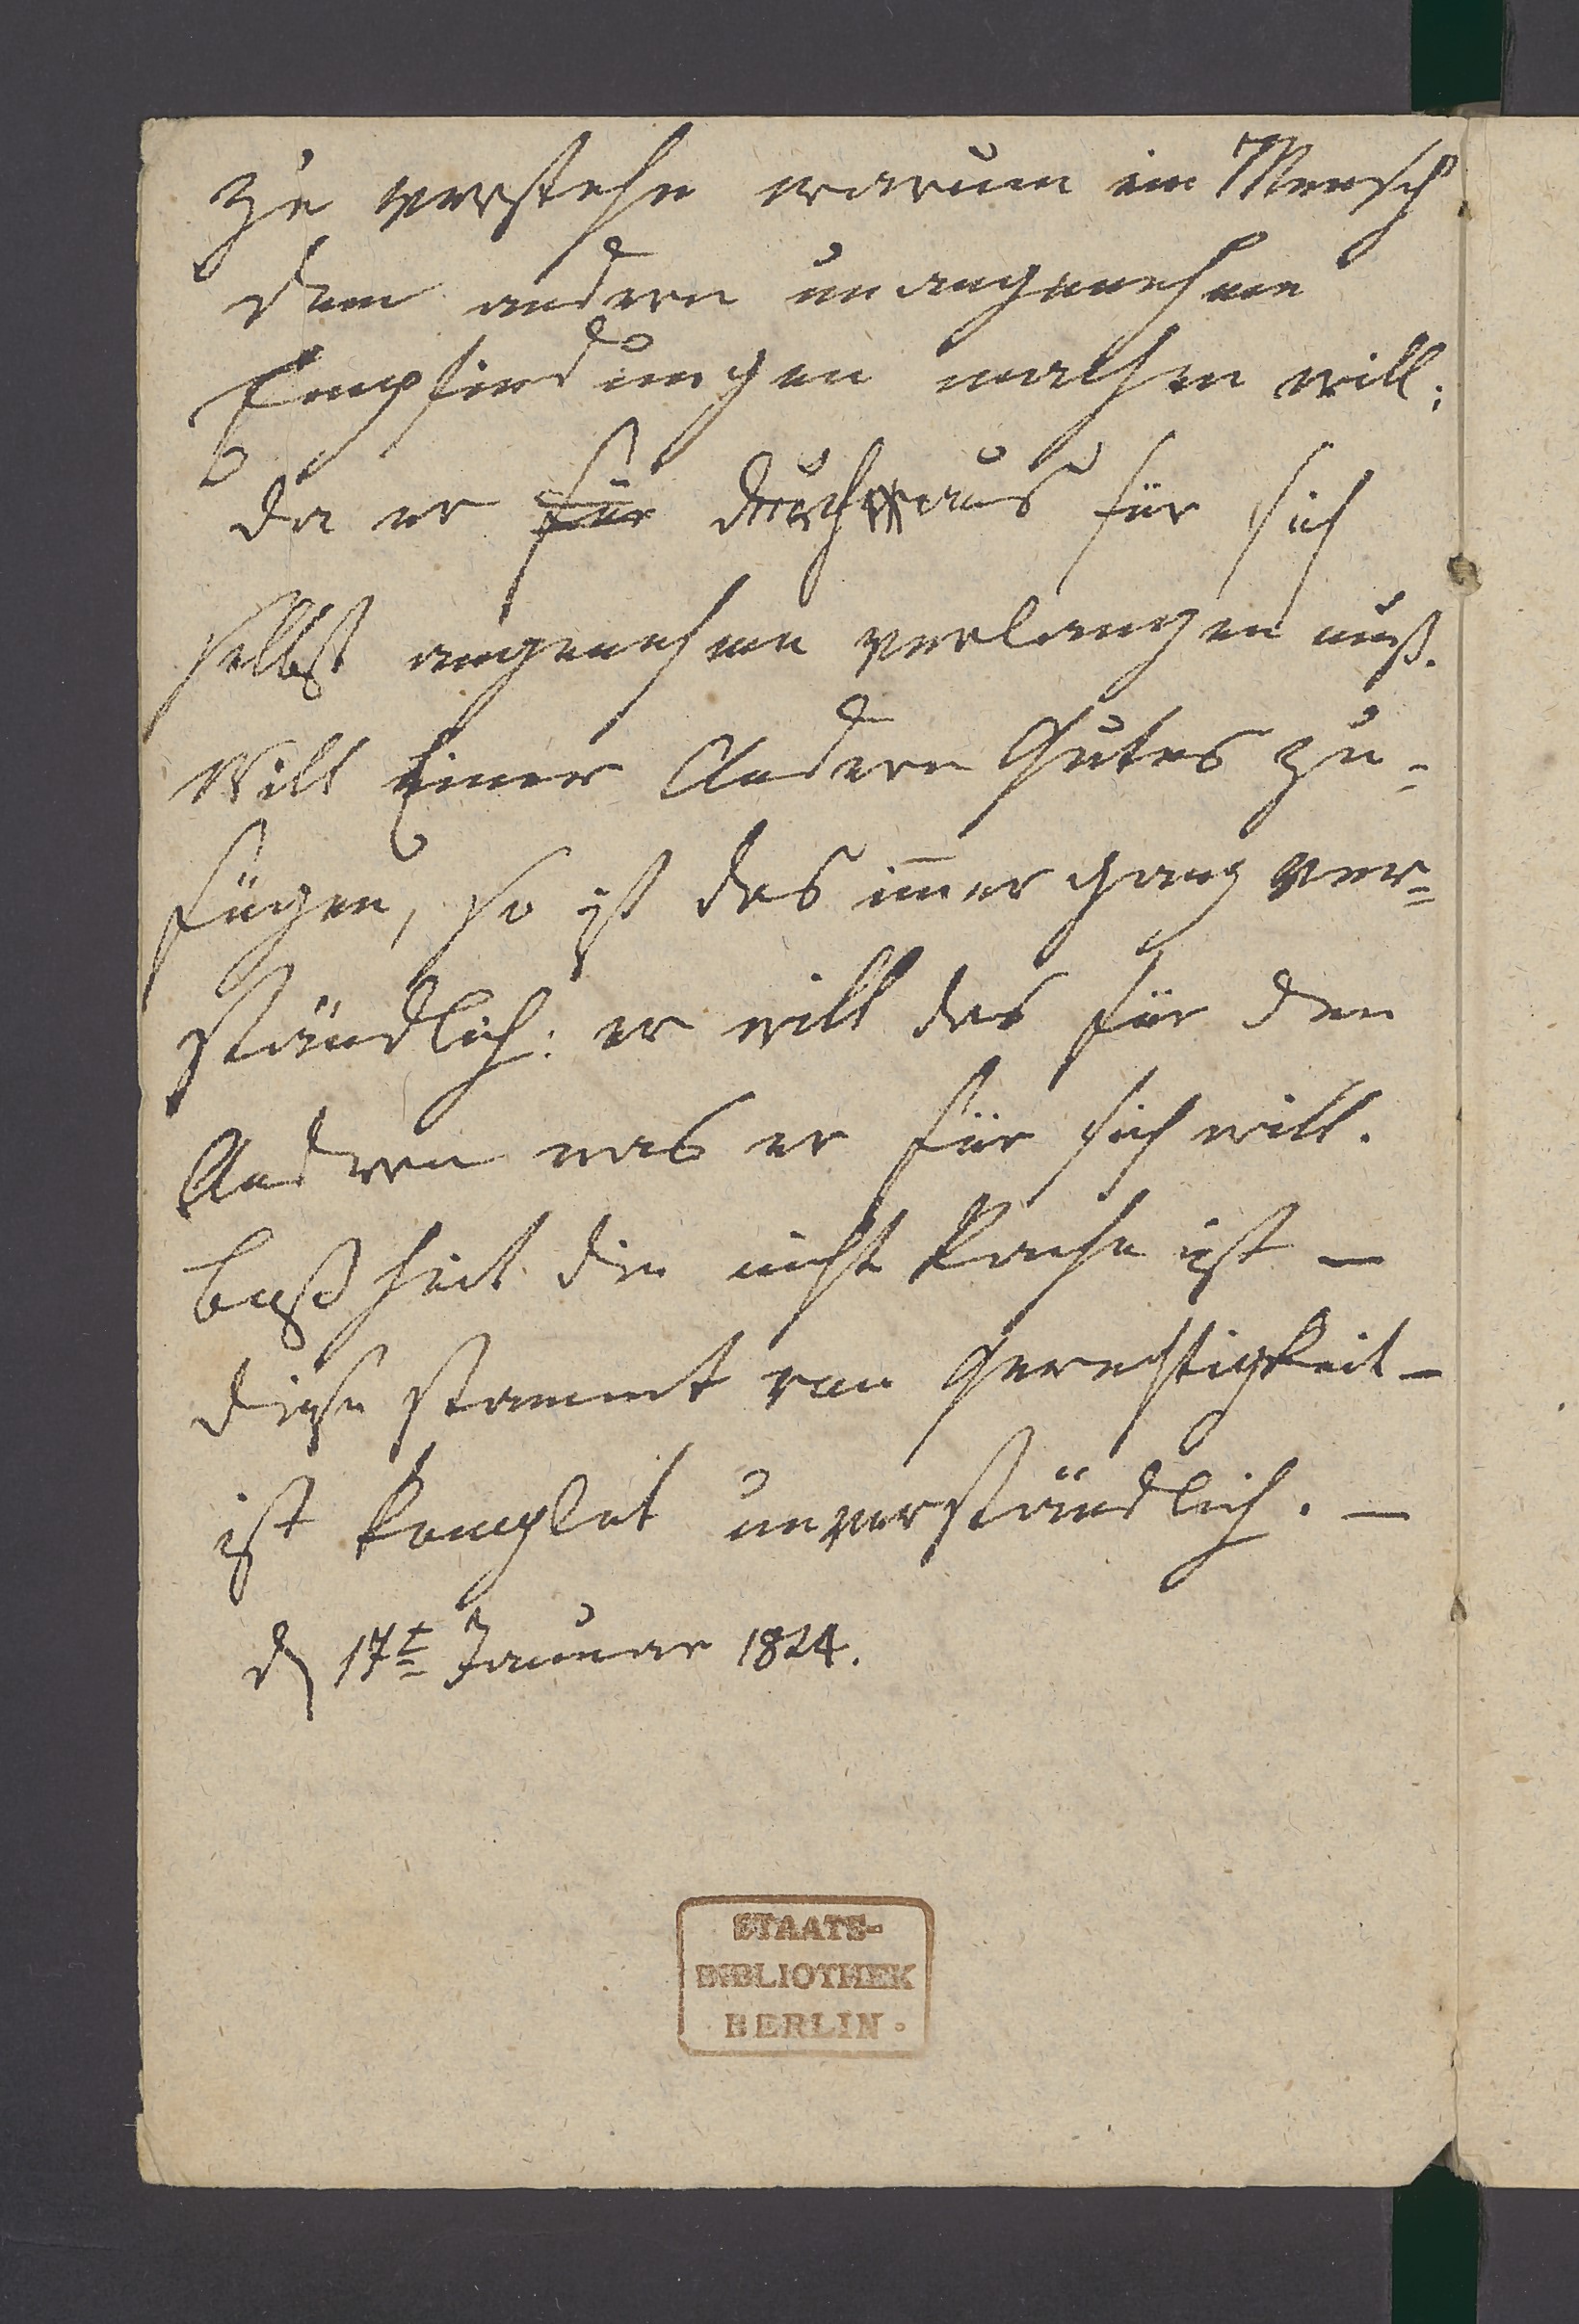 zu verstehn warum ein Mensch
dem andern unangenehme
Empfindungen machen will;
da er für durchaus für sich
selbst angenehme verlangen muß.
Will Einer Andern Gutes zu-
fügen, so ist das im̄er ganz ver-
ständlich: er will das für den
Andren was er für sich will.
Boßheit die nicht Rache ist —
diese stammt von Gerechtigkeit —
ist komplet unverständlich. —
d 17t Januar 1824.
STAATS-
BIBLIOTHEK
BERLIN